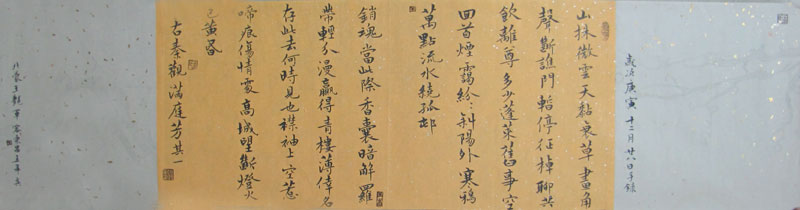 歲次庚寅十二月廿八日手錄
山抹微雲天黏衰草畫角
聲斷譙門暫停征棹聊共
飲離尊多少蓬萊舊事空
回首煙靄紛〻斜陽外寒鴉
萬點流水繞孤邨
銷魂當此際香囊暗解羅
帶輕分漫贏得青樓薄倖名
存此去何時見也襟袖上空惹
啼痕傷情處高城望斷燈火
已黃昏
右秦觀滿庭芳其一